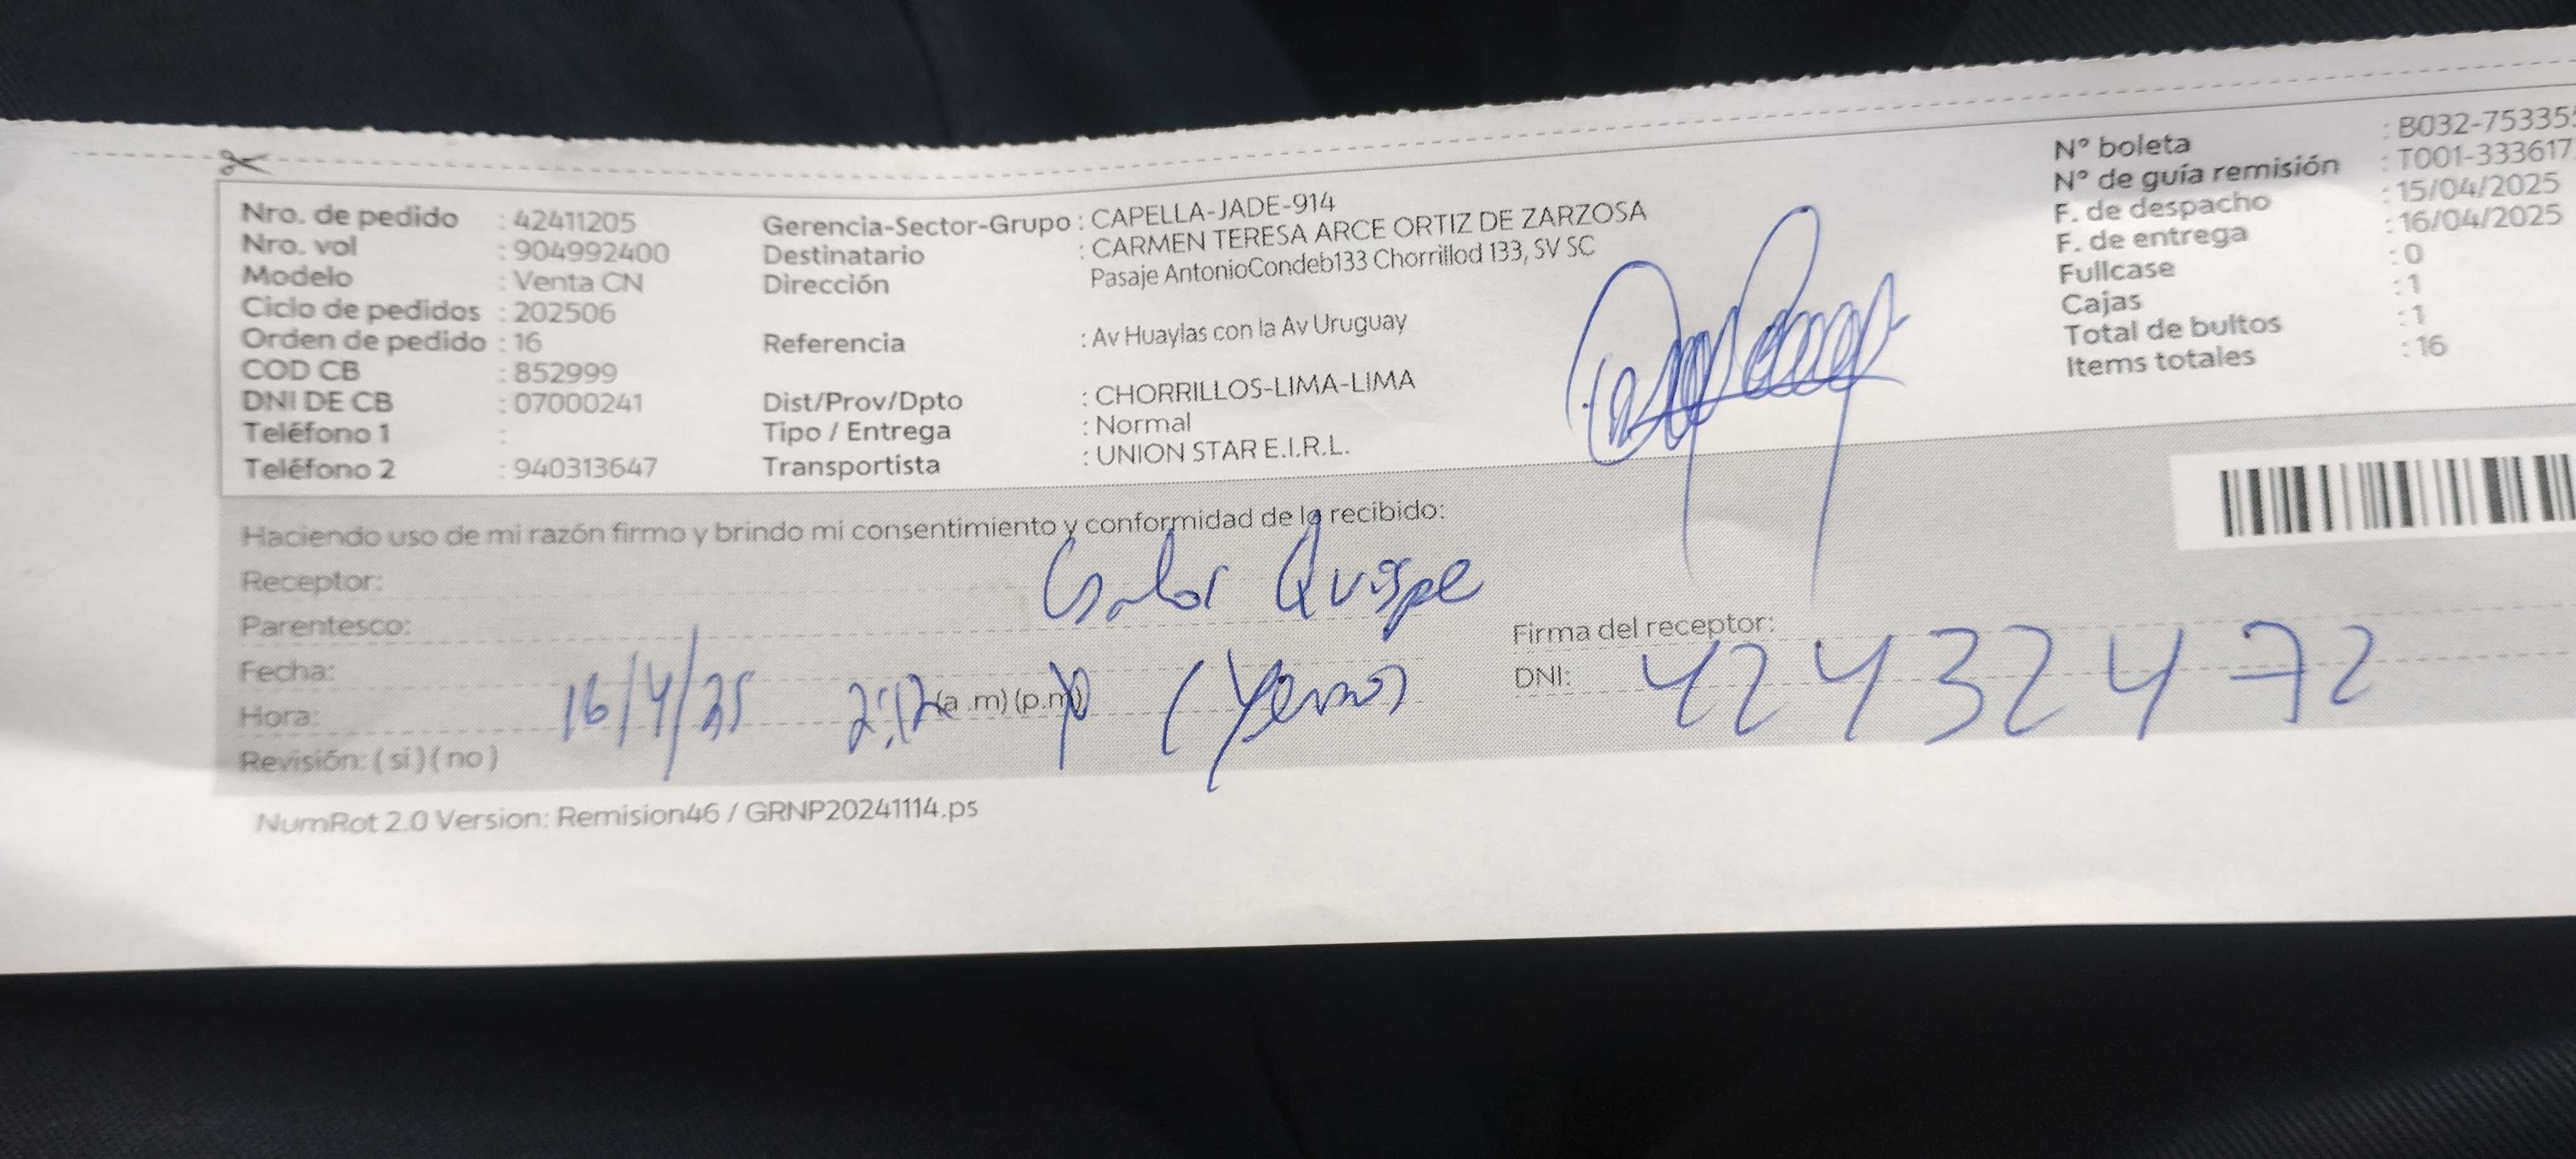 Nro. de pedido : 42411205
Nro. vol : 904992400
Modelo : Venta CN
Ciclo de pedidos : 202506
Orden de pedido : 16
COD CB : 852999
DNI DE CB : 07000241
Teléfono 1 :
Teléfono 2 : 940313647
Gerencia-Sector-Grupo : CAPELLA-JADE-914
Destinatario : CARMEN TERESA ARCE ORTIZ DE ZARZOSA
Dirección Pasaje AntonioCondeb133 Chorrillod 133, SV SC
Referencia : Av Huaylas con la Av Uruguay
Dist/Prov/Dpto : CHORRILLOS-LIMA-LIMA
Tipo / Entrega : Normal
Transportista : UNION STAR E.I.R.L.
N° boleta : B032-75335
N° de guía remisión : T001-333617
F. de despacho : 15/04/2025
F. de entrega : 16/04/2025
Fullcase : 0
Cajas : 1
Total de bultos : 1
Items totales : 16
Haciendo uso de mi razón firmo y brindo mi consentimiento y conformidad de lo recibido:
Receptor: Quispe
Parentesco:
Fecha: 16/4/25
Hora: 2:12 (a .m) (p.m) (Yerno)
Revisión: ( si ) ( no )
Firma del receptor:
DNI: 42432472
NumRot 2.0 Version: Remision46 / GRNP20241114.ps